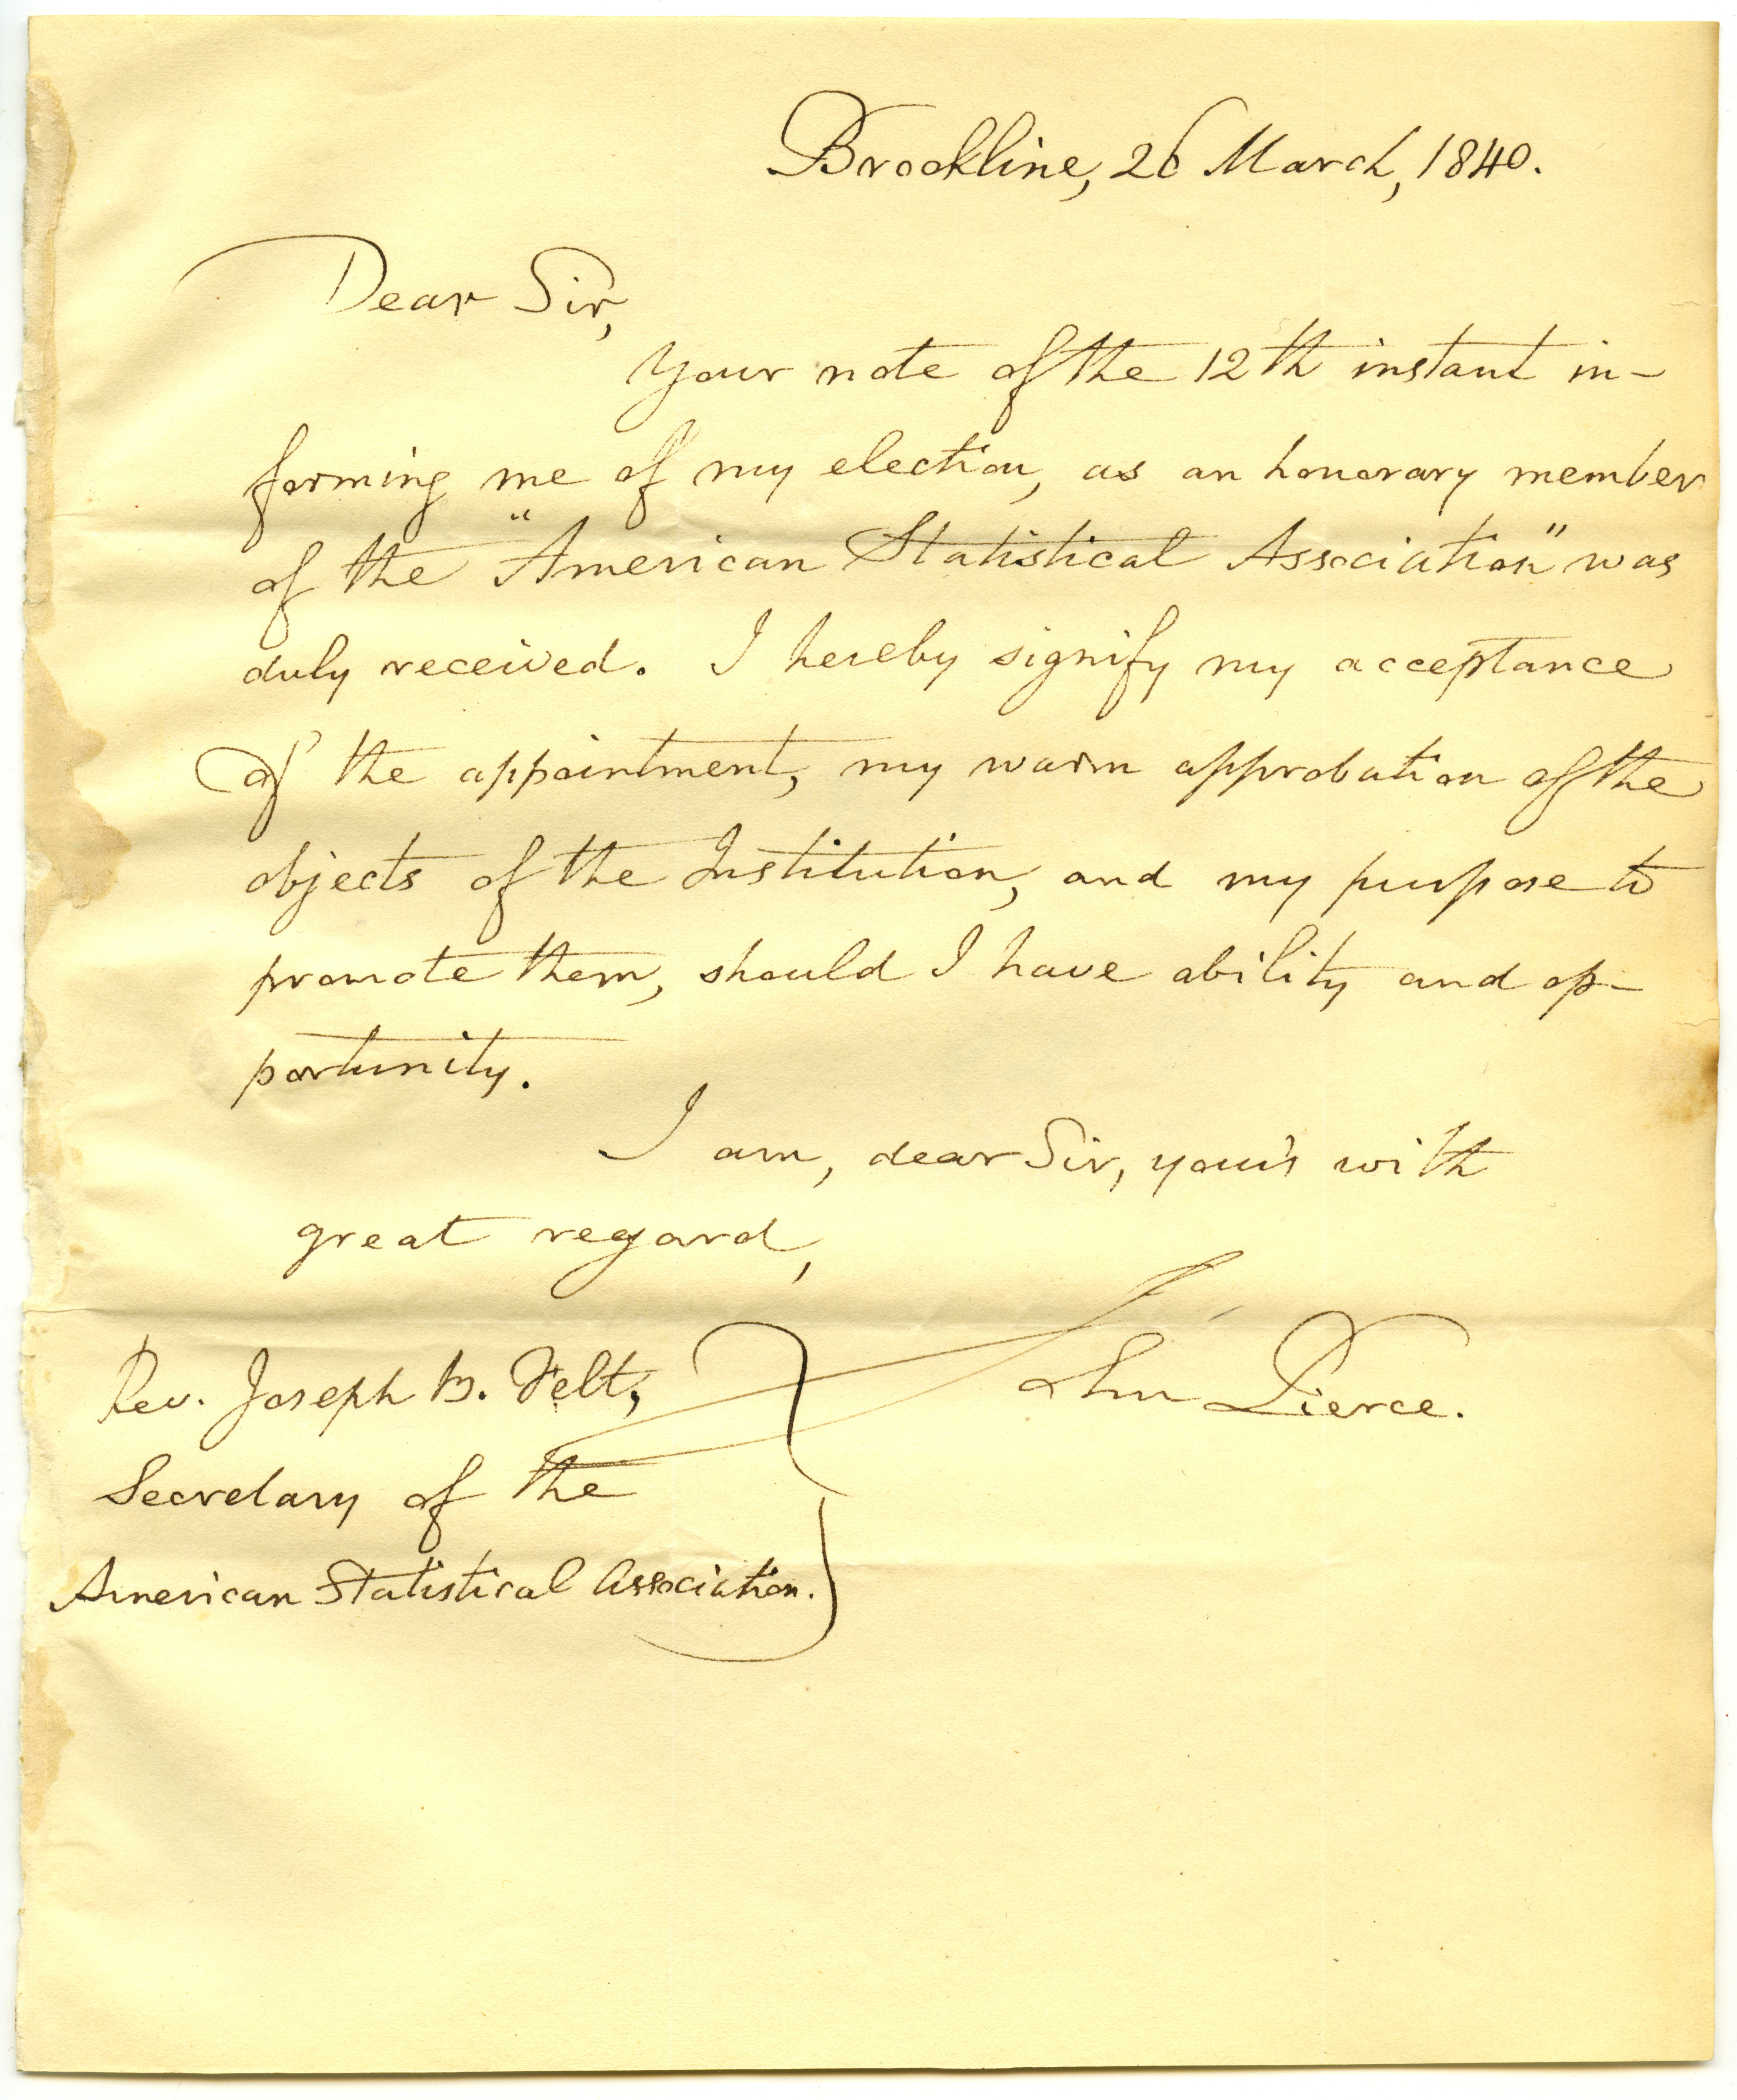 Brookline, 26 March, 1840.
Dear Sir,
Your note of the 12th instant in-
forming me of my election, as an honorary member
of the "American Statistical Association" was
duly received. I hereby signify my acceptance
of the appointment, my warm approbation of the
objects of the Institution, and my purpose to
promote them, should I have ability and op-
portunity.
I am, dear Sir, your's with
great regard,
John Pierce.
Rev. Joseph B. Felt,
Secretary of the
American Statistical Association.